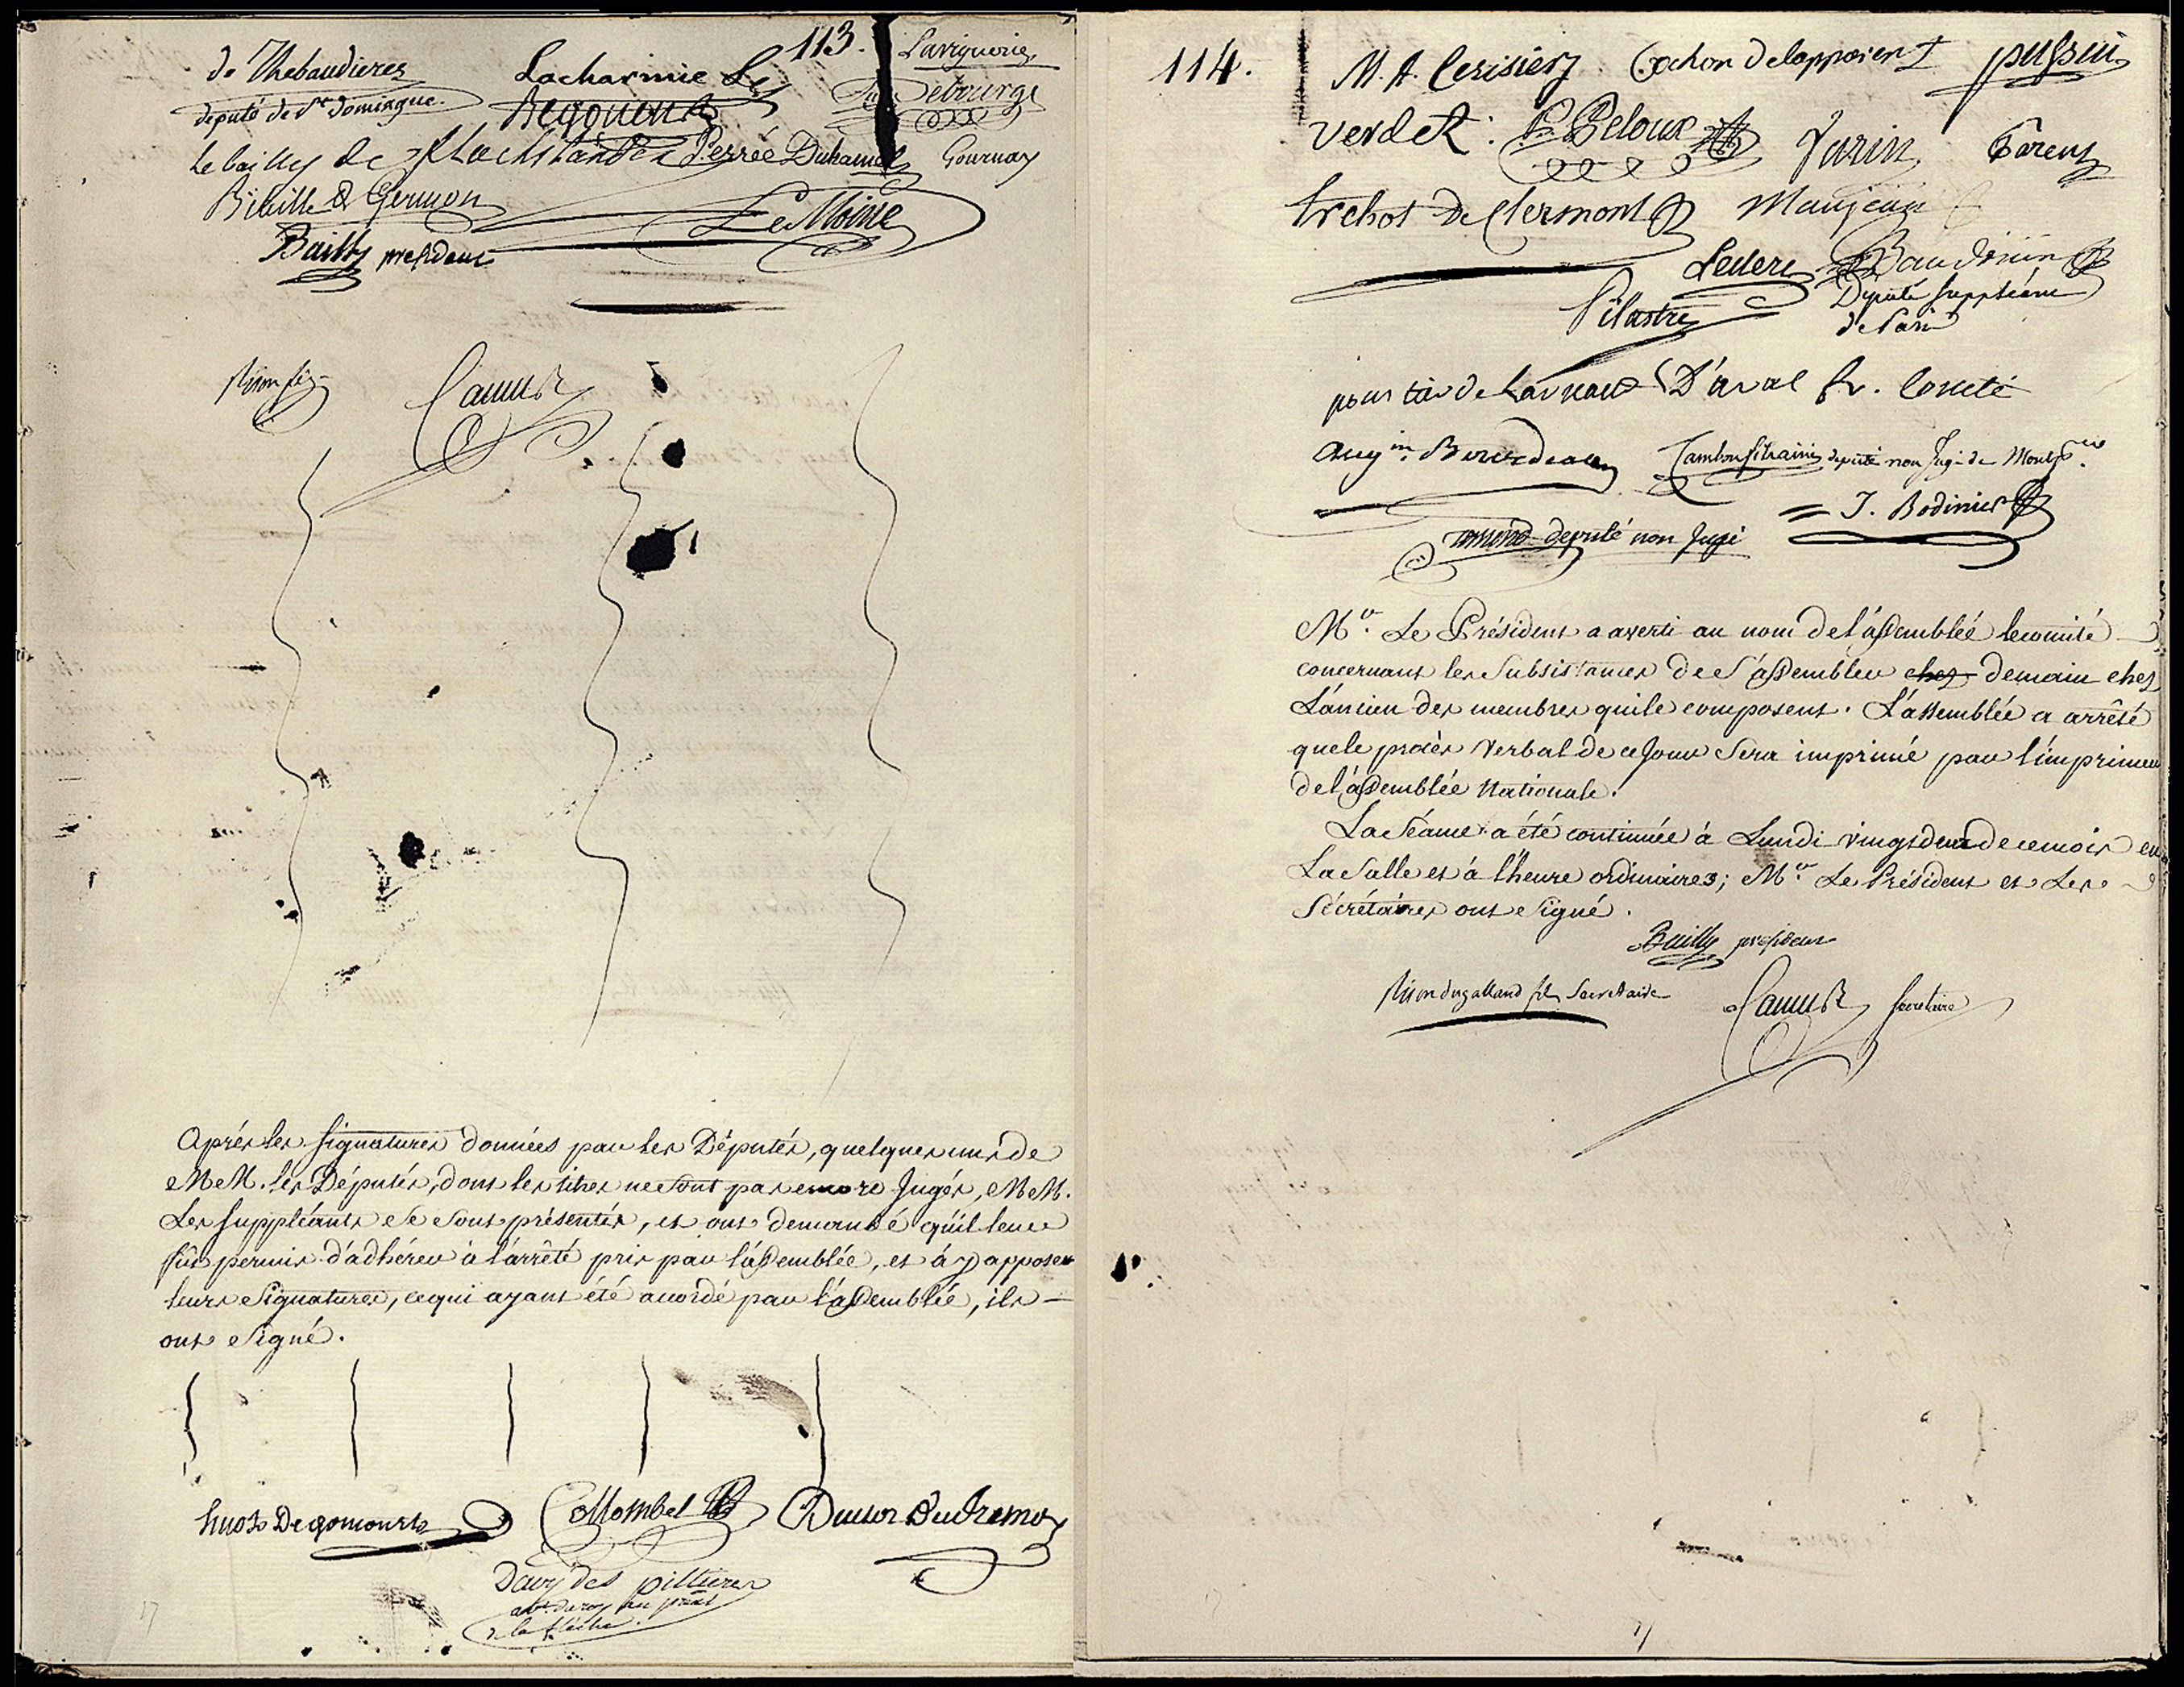 113.
de Thebaudieres
Lacharmie
Laviguerie
député de St domingue.
Begouen
Debourge
le bailly de flachslanden Perrée Duhamel Gournay
Bidault
LeMoine
Bailly president
Camus
Après les signatures données par les Députés, quelques uns de
MM. les Députés, dont les titres ne sont pas encore Jugés, MM.
Les suppléants se sont présentés, et ont demandé qu'il leur
fut permis d'adhérer à l'arrêté pris par l'assemblée, et à y apposer
leurs signatures, ce qui ayant été accordé par l'assemblée, ils
ont signé.
huot De goncourt Collombel
Davy des piltieres
de la flèche.
114.
M. A. Cerisier Cochon delapparent
Verdet P. Peloux Varin
trehot De Clermont Maujean
Leclerc Baudouin
Député suppléant
de Paris
Pilastre
D'aval fr. Comté
député non Jugé de
J. Bodinier
député non Jugé
Mr. Le Président a averti au nom de l'assemblée le comité
concernant les subsistances de s'assembler chez demain chez
L'ancien des membres qui le composent. L'assemblée a arrêté
que le procès verbal de ce Jour sera imprimé par l'imprimeur
de l'assemblée Nationale.
La Séance a été continuée à Lundi vingt deux de ce mois en
La Salle et à l'heure ordinaires; Mr. Le Président et Les
Sécrétaires ont signé.
Bailly president
Pison dugalland fils Secretaire Camus secretaire